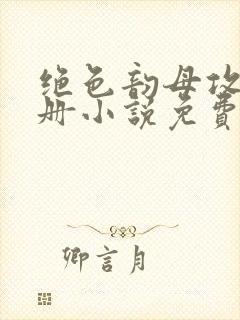 绝色韵母攻
册小说免费
卿言月